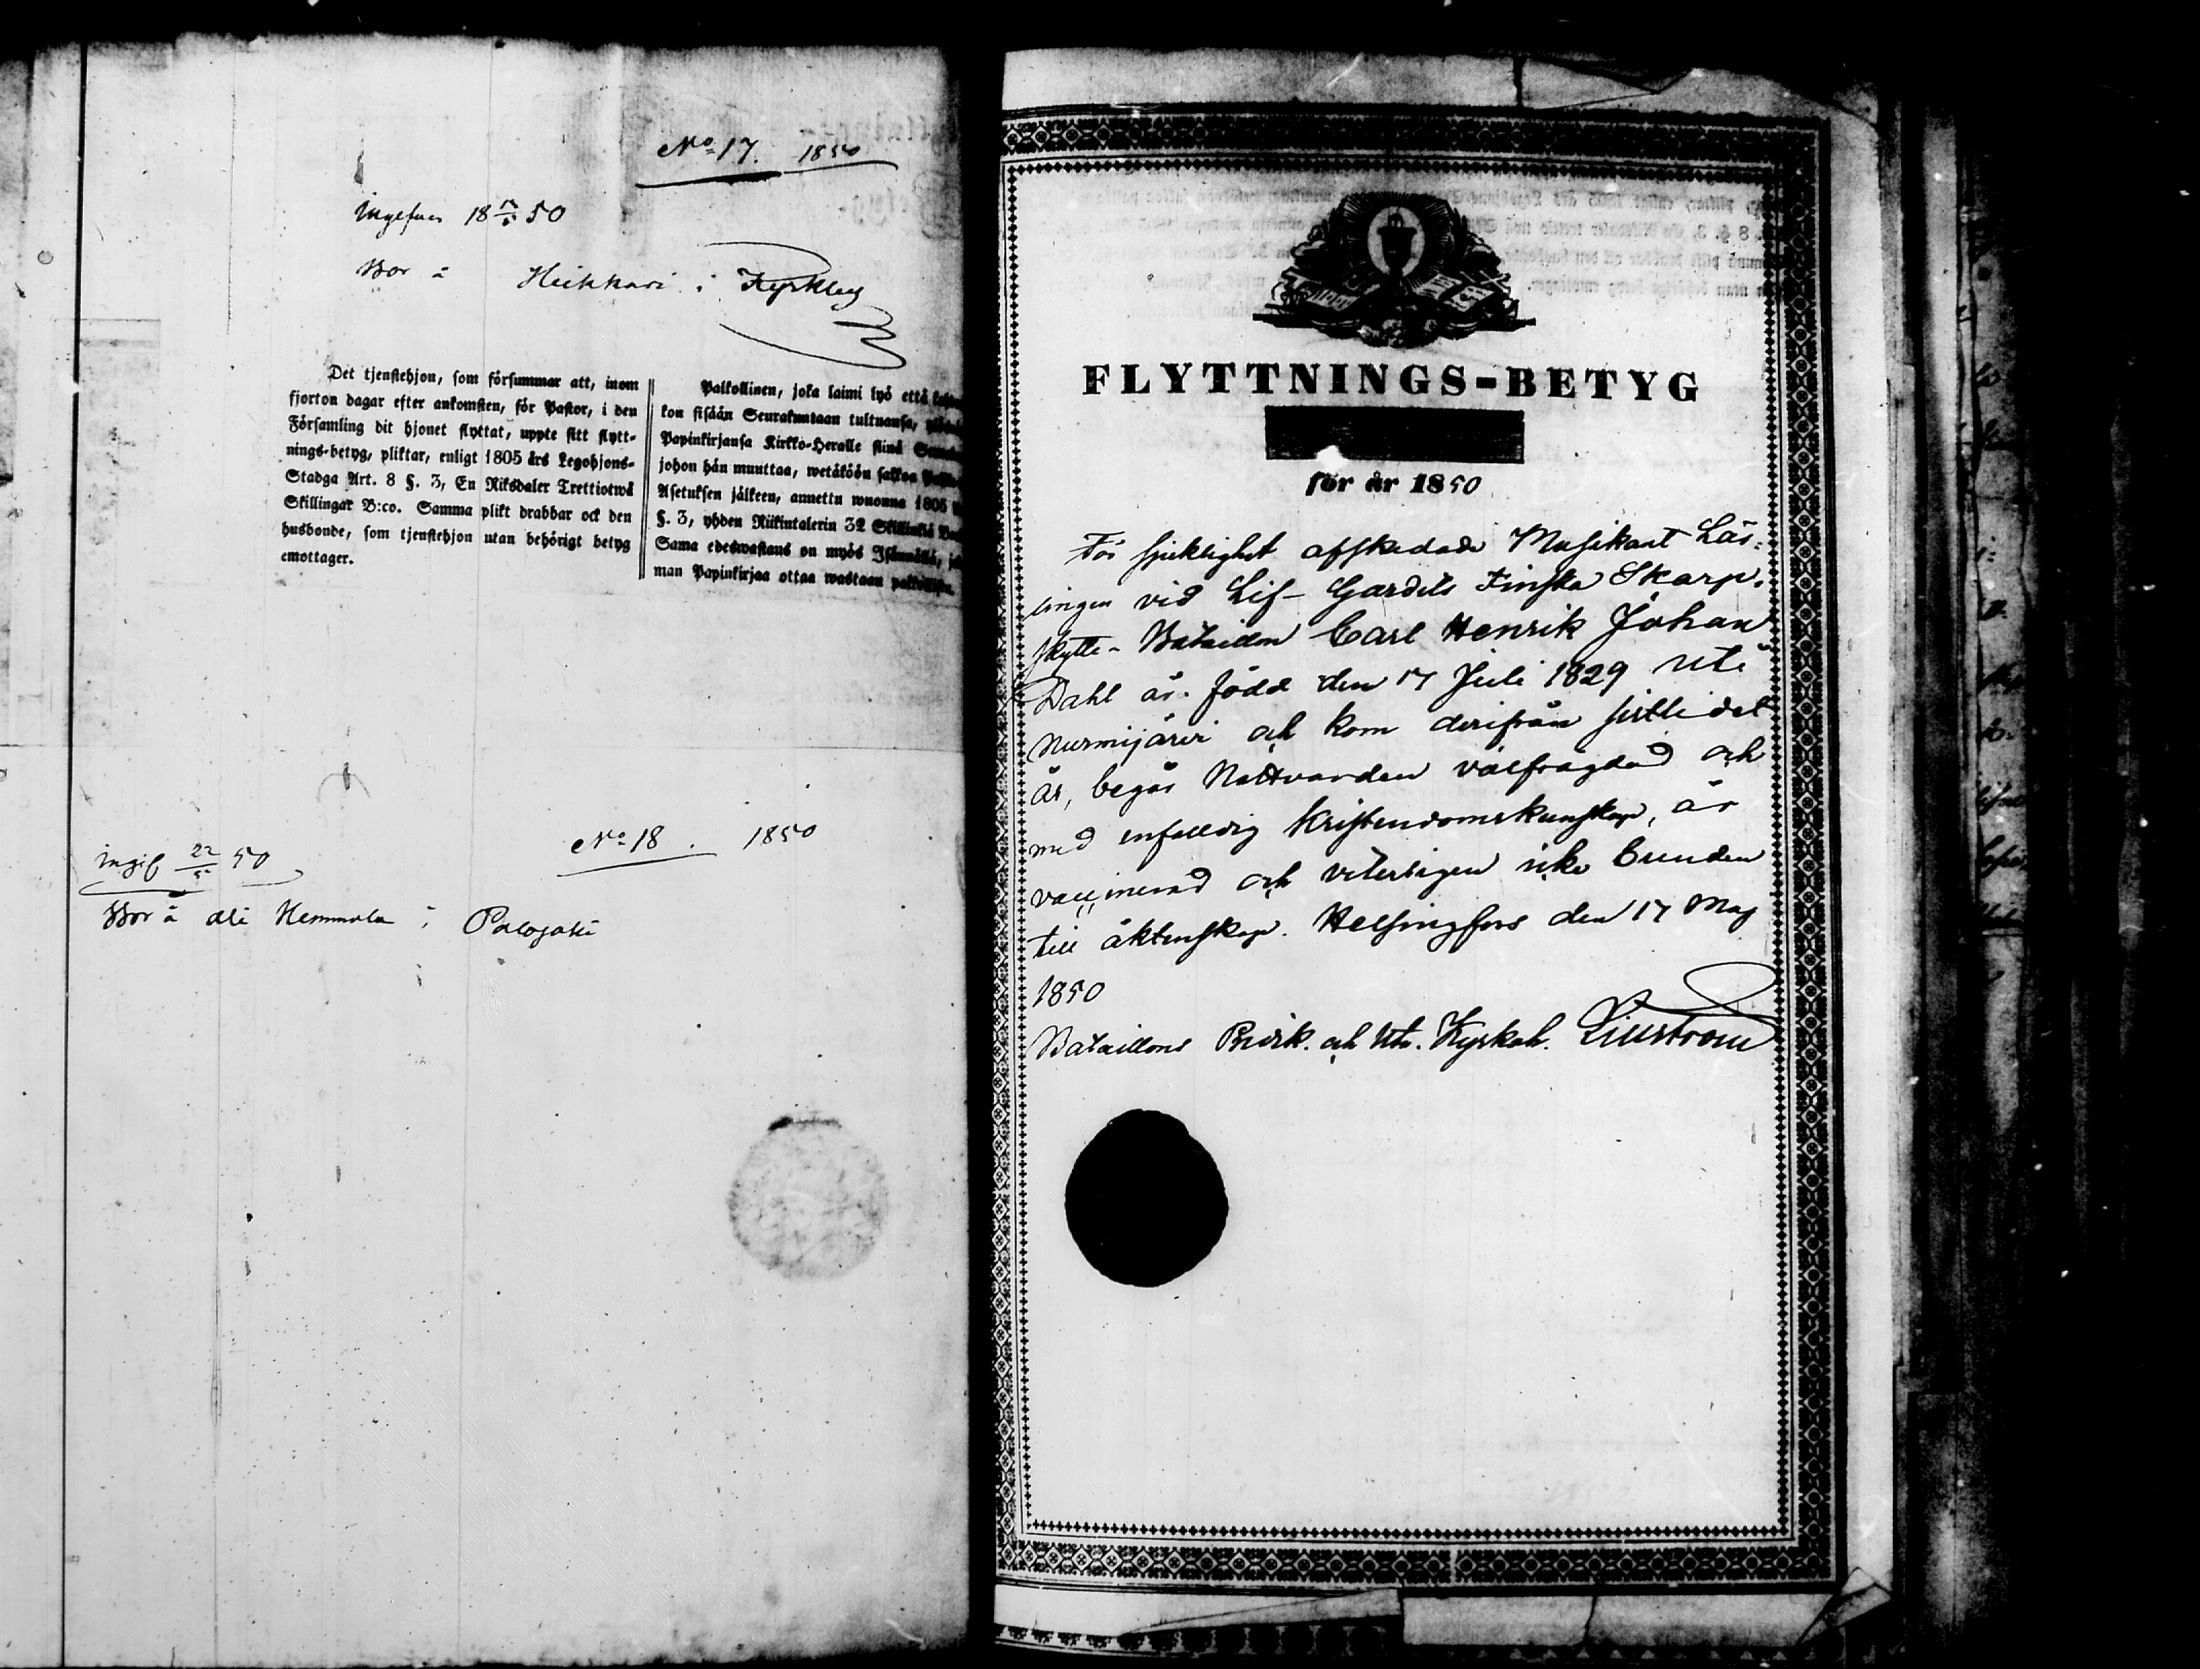 No 17. 1850
Bor å Heikkari i Kyrkby
Det tjenstehjon, som försummar att, inom
fjorton dagar efter ankomsten, för Pastor, i den
Församling dit hjonet flyttat, uppte sitt flytt-
nings-betyg, pliktar, enligt 1805 års Legohjons-
Stadga Art. 8 §. 3, En Riksdaler Trettiotwå
Skillingar B:co. Samma plikt drabbar ock den
husbonde, som tjenstehjon utan behörigt betyg
emottager.
Palkollinen, joka laimi lyö että
kon sisään Seurakuntaan tultuansa,
Papinkirjansa Kirkko-Heralle siinä
johon hän muuttaa, wetäköön sakkoa
Asetuksen jälkeen, annettu wuonna 1805
§. 3, yhden Riikintalerin 32 Skillinkiä
Sama edeswastaus on myös Isännällä,
man Papinkirjaa ottaa wastaan palkollisen.
No 18. 1850
ingif 22/5 50
Bor å Ali Hemmola i Palojoki
FLYTTNINGS-BETYG
för år 1850
För sjuklighet afskedade Musikant Lär-
lingen vid Lif-Gardets Finska Skarp-
skytte-Bataillon Carl Henrik Johan
Dahl är född den 17 Juli 1829 uti
Nurmijärvi och kom derifrån sistlidet
år, begår Nattvarden välfrägdad och
med enfaldig Kristendomskunskap, är
vaccinerad och veterligen icke bunden
till äktenskap. Helsingfors den 17 Maj
1850
Bataillons Predik. och Utn. Kyrkoh. Liljeström